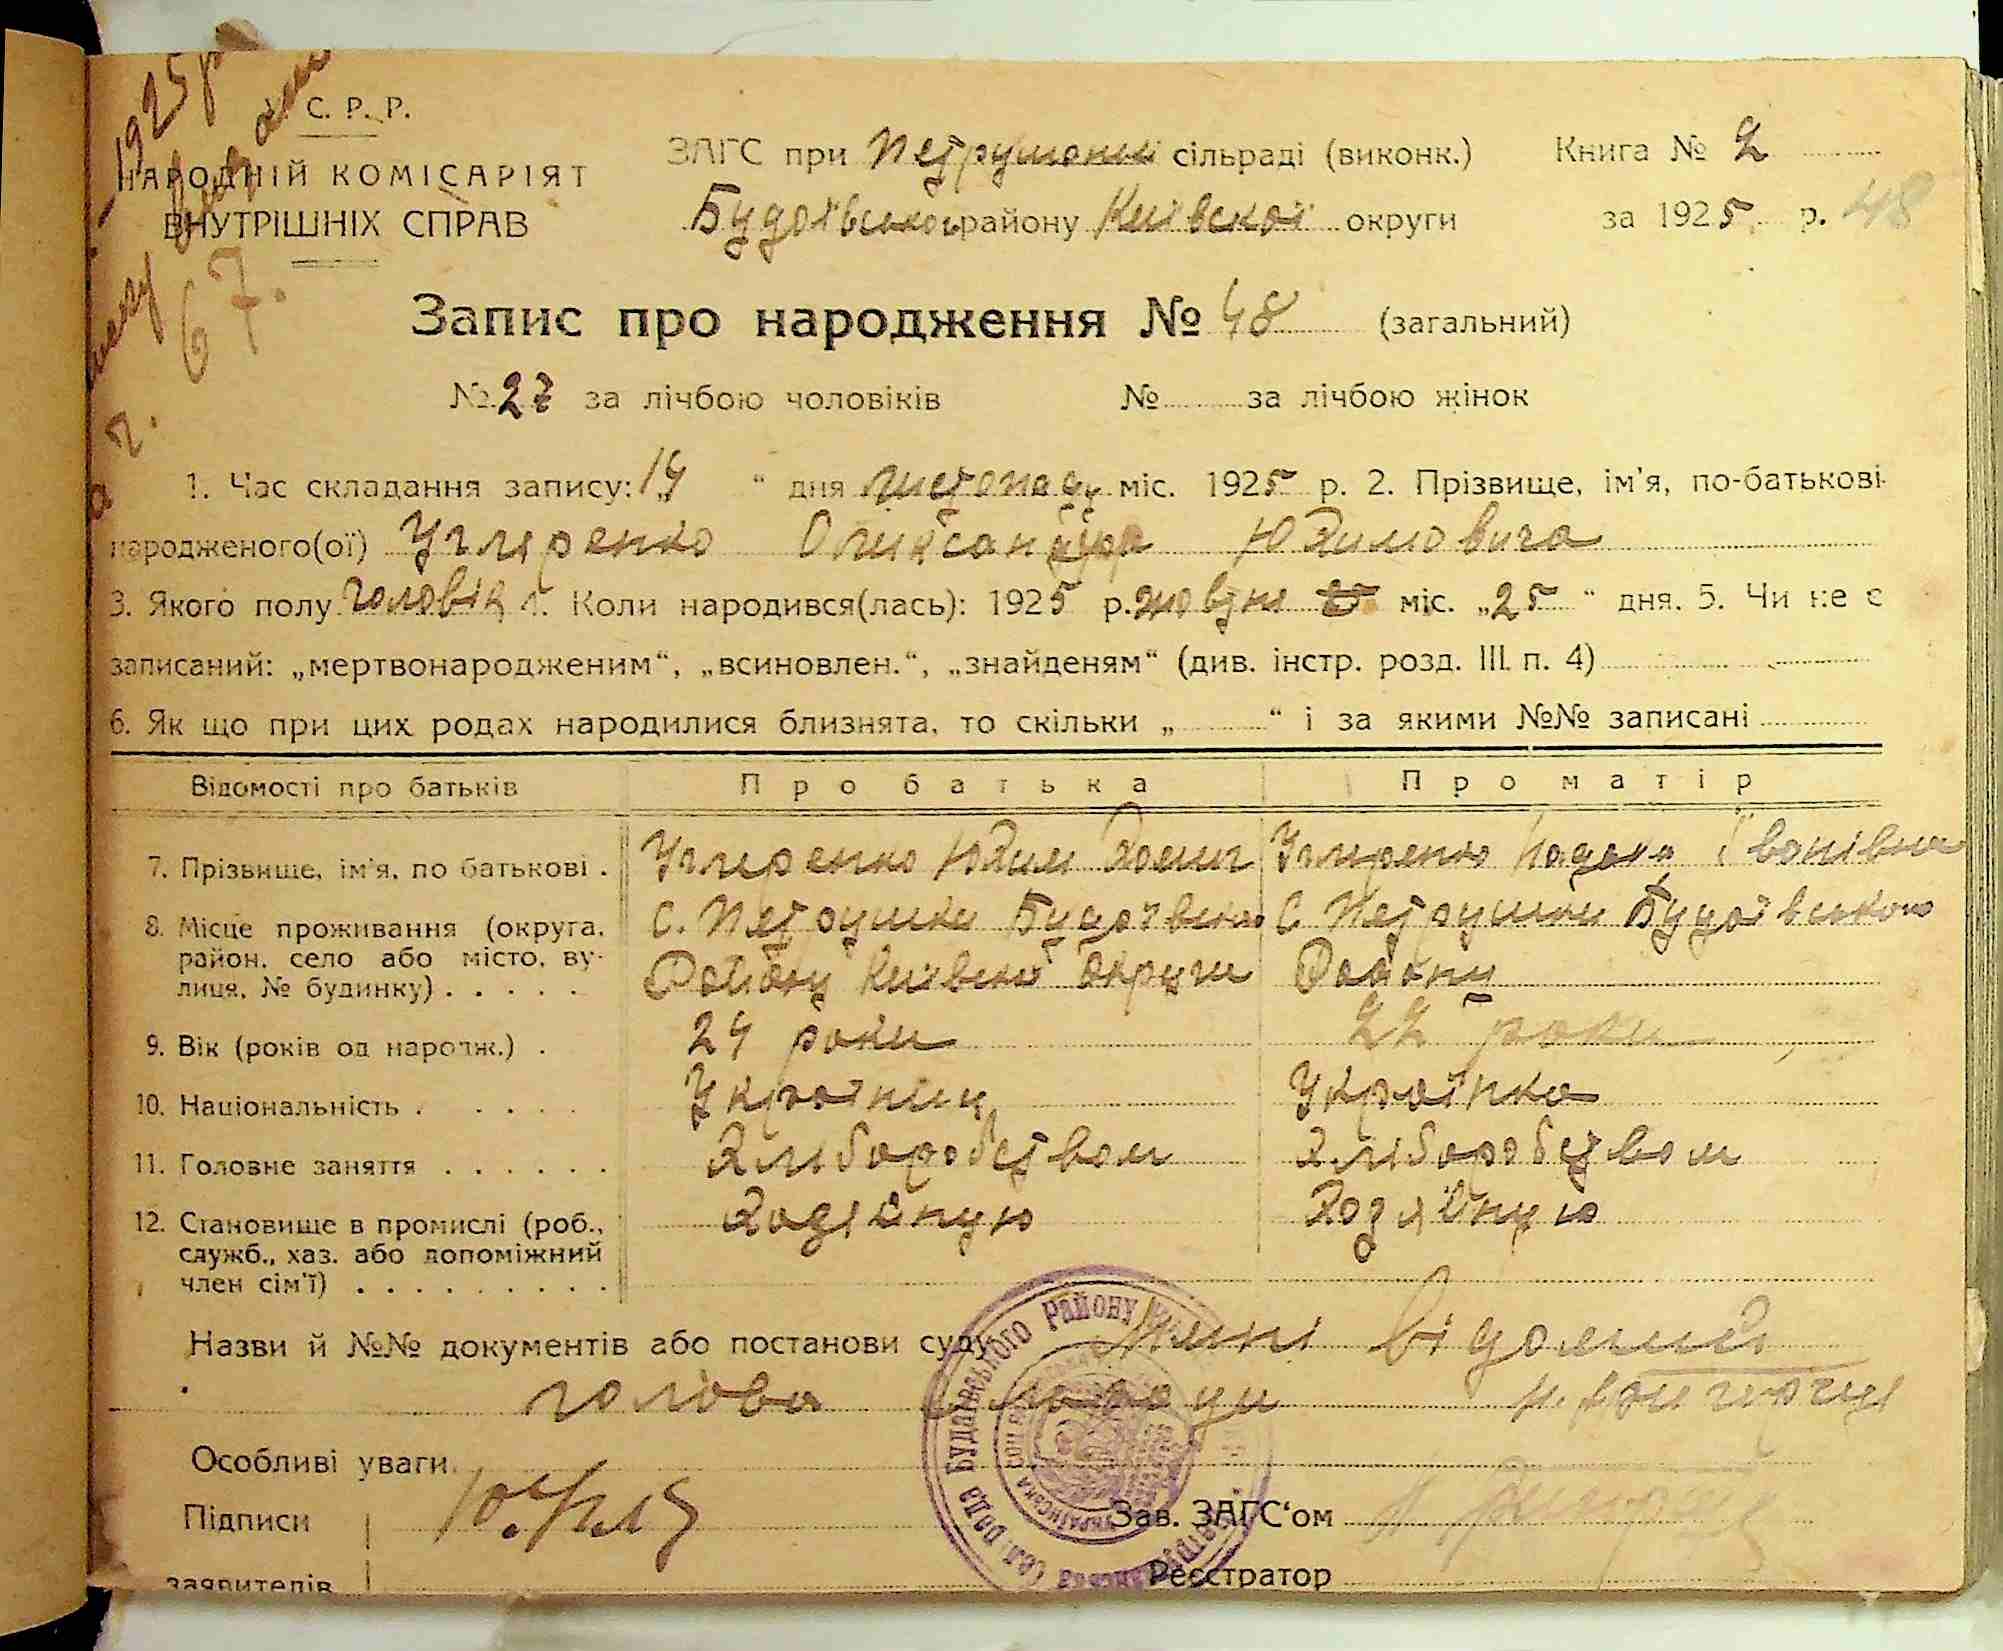 1925 р
С. Р. Р.
НАРОДНІЙ КОМІСАРІЯТ
ВНУТРІШНІХ СПРАВ
67.
ЗАГС при Петрушанкі сільраді (виконк.) Книга № 2
Будаївського району Київскої округи за 1925 р. 48
Запис про народження № 48 (загальний)
№ 27 за лічбою чоловіків № за лічбою жінок
1. Час складання запису: 14 " дня листопаду міс. 1925 р. 2. Прізвище, ім'я, по-батькові
народженого(ої) Угляренко Олександра Юхимовича
3. Якого полу чоловік 4. Коли народився(лась): 1925 р. жовтня міс. „25" дня. 5. Чи не є
записаний: „мертвонародженим", „всиновлен.", „знайденям" (див. інстр. розд. III. п. 4)
6. Як що при цих родах народилися близнята, то скільки „ " і за якими №№ записані
Відомості про батьків Про батька Про матір
7. Прізвище, ім'я, по батькові . Угляренко Юхим Угляренко Івонівна
8. Місце проживання (округа, с. Петрушки Будаївского с Петрушки Будаївського
район, село або місто, ву-
лиця, № будинку) . . . . . Району Київскої округи Району
9. Вік (років од народж.) . 24 роки 22 роки
10. Національність . . . . . Українец Українка
11. Головне заняття . . . . . . Хліборобством Хліборобством
12. Становище в промислі (роб., Хазяйную Хазяйную
служб., хаз. або допоміжний
член сім'ї) . . . . . . . . .
Назви й №№ документів або постанови суду Мині відомий
голова
Особливі уваги
Підписи Зав. ЗАГС'ом
заявителів Реєстратор
Сел. рада Будаївського району